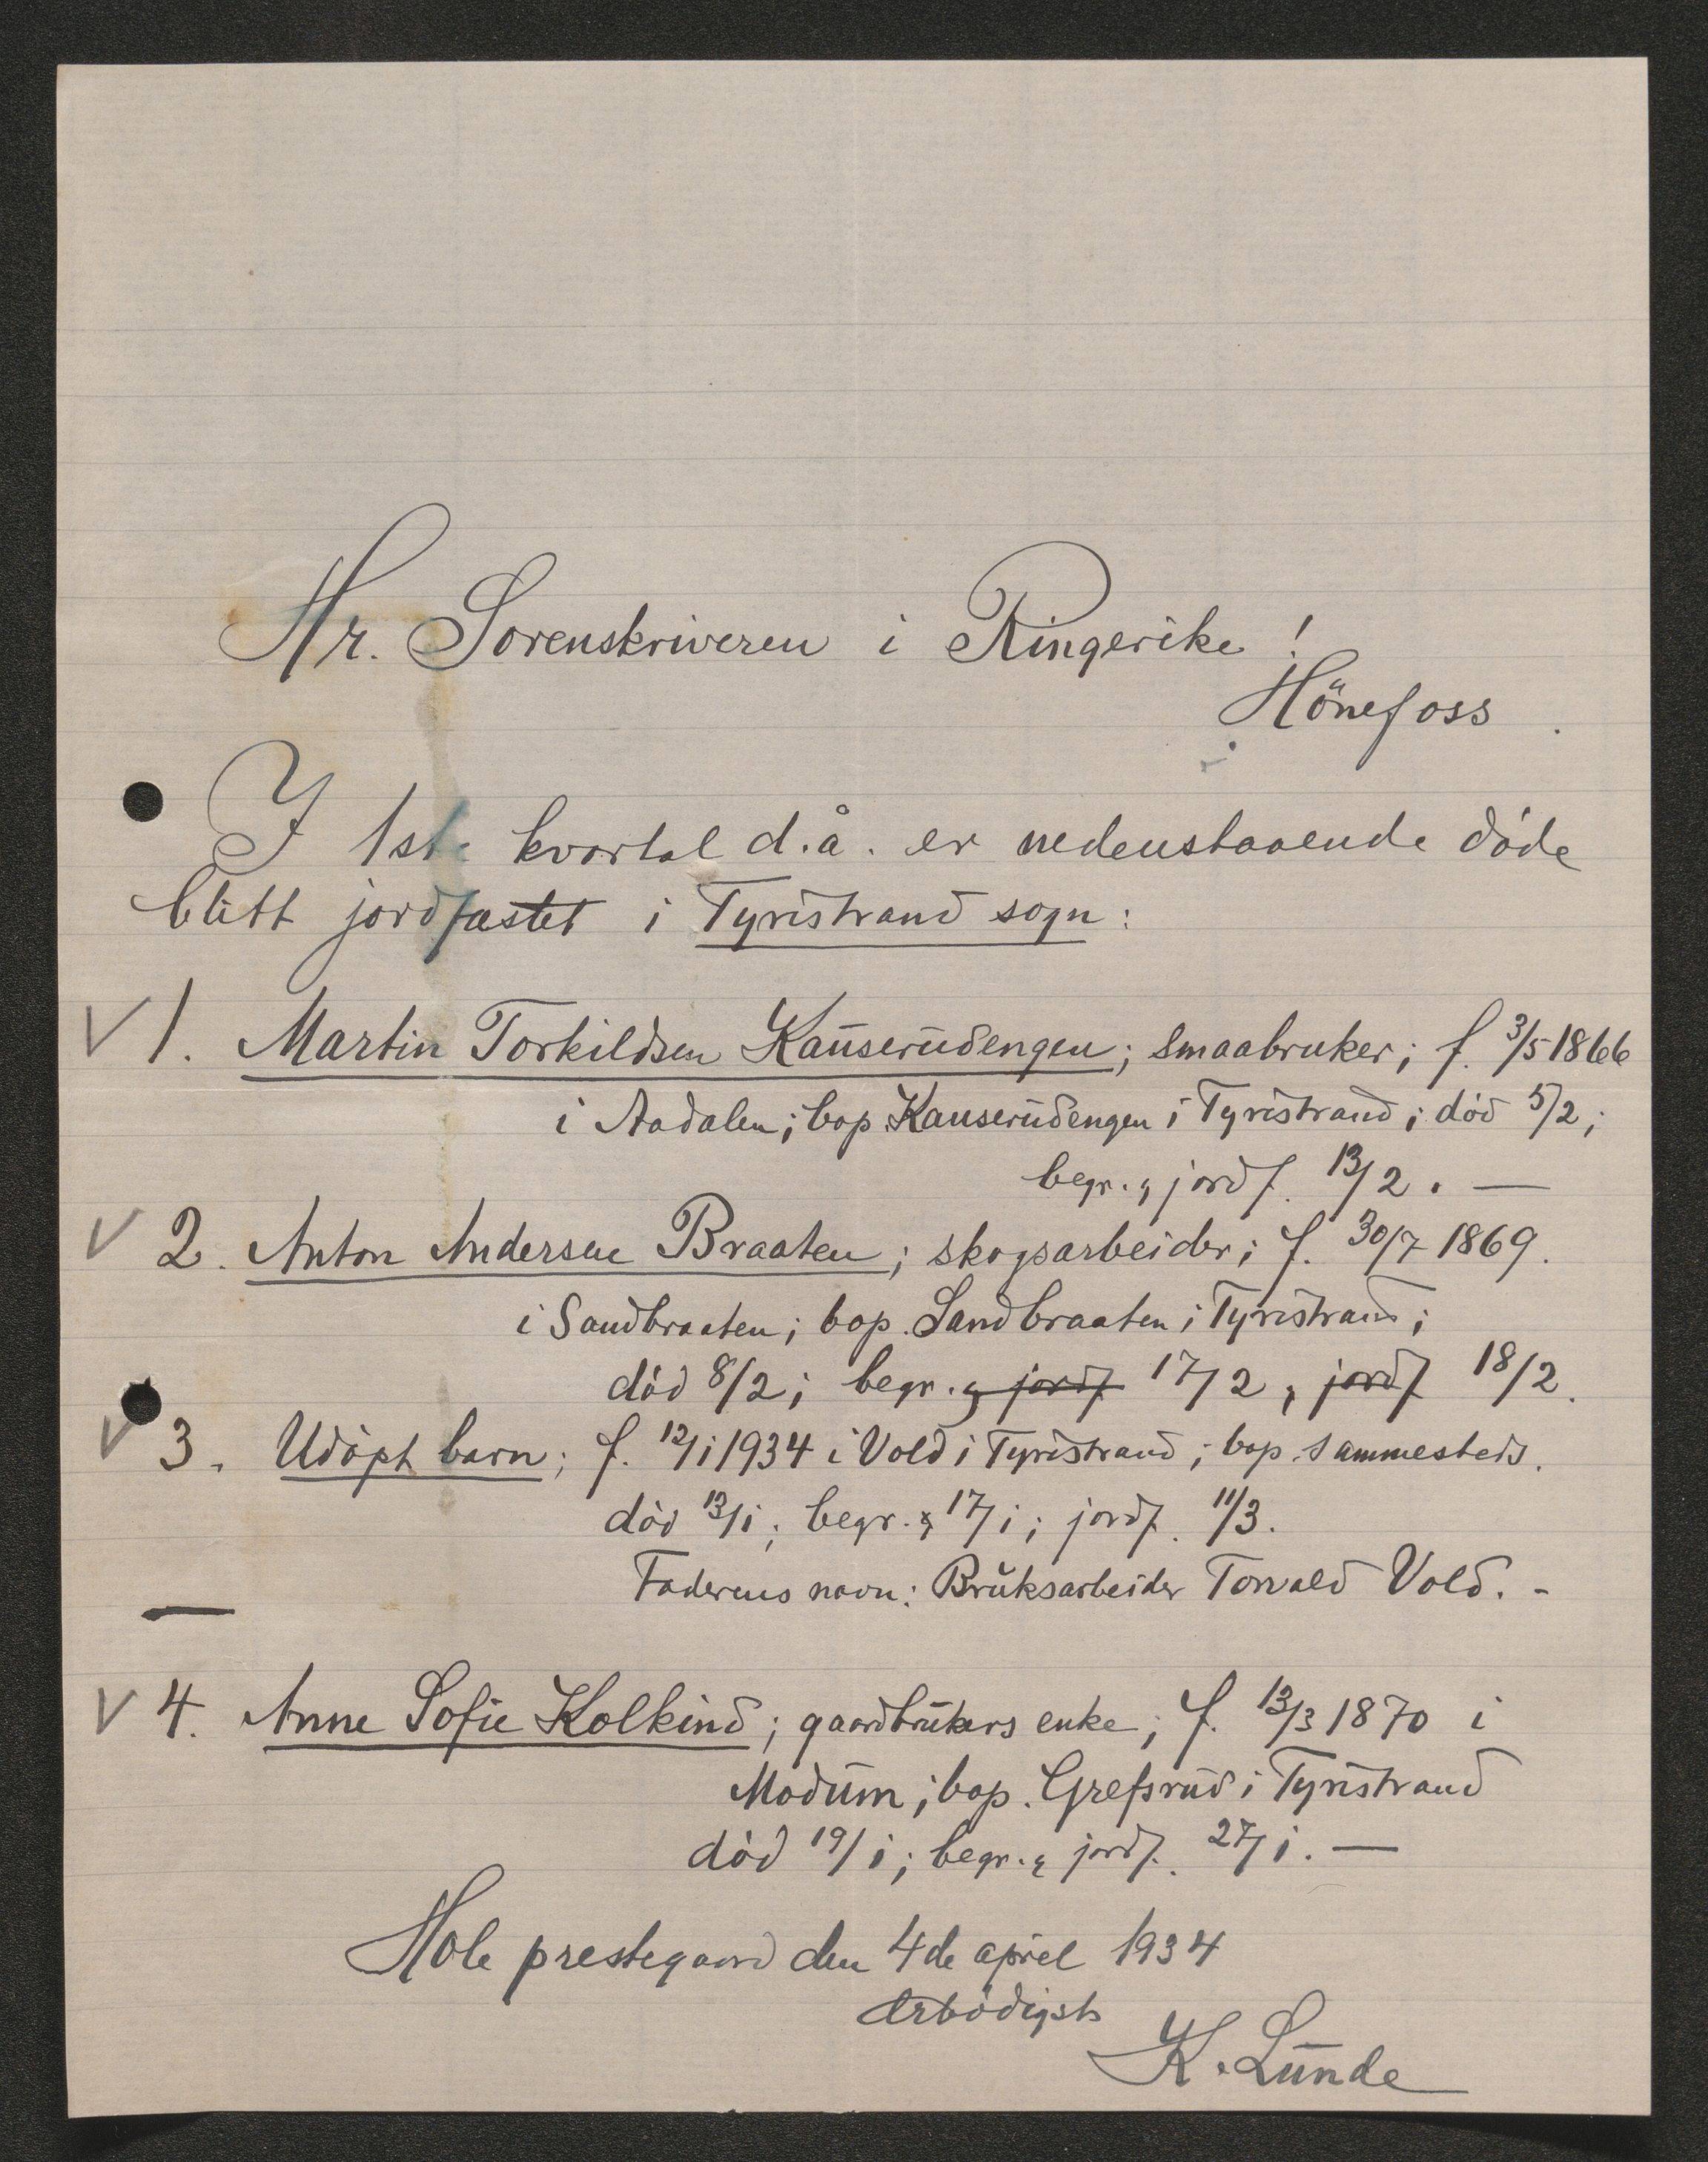 Hr. Sorenskriveren i Ringerike!
Hönefoss.
I 1ste kvartal d.å. er nedenstaaende døde
blitt jordfæstet i Tyristrand sogn:
1. Martin Torkildsen Kauserudengen; smaabruker; f. 3/5 1866
i Aadalen; bop. Kauserudengen i Tyristrand; död 5/2;
begr. & jordf. 13/2. —
2. Anton Andersen Braaten; skogsarbeider; f. 30/7 1869.
i Sandbraaten; bop. Sandbraaten i Tyristrand;
död 8/2; begr. & jordf 17/2, jordf 18/2.
3. Udöpt barn; f. 12/1 1934 i Vold i Tyristrand; bop. sammesteds.
död 13/1; begr. & 17/1; jordf. 11/3.
Faderens navn: Bruksarbeider Torvald Vold. -
4. Anne Sofie Kolkind; gaardbrukers enke; f. 13/3 1870 i
Modum; bop. Grefsrud i Tyristrand
död 19/1; begr. & jordf. 27/1. —
Hole prestegaard den 4de april 1934
Ærbödigst
K. Lunde